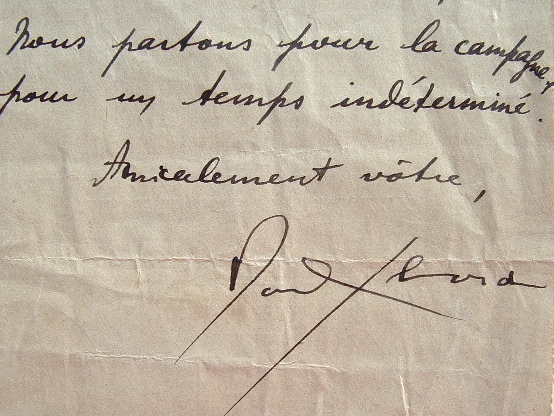 Nous partons pour la campagne,
pour un temps indéterminé.
Amicalement vôtre,
Paul